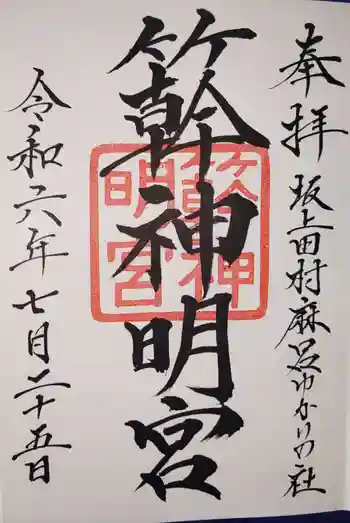 奉拝
坂上田村麻呂ゆかりの社
竹幹神明宮
令和六年七月二十五日